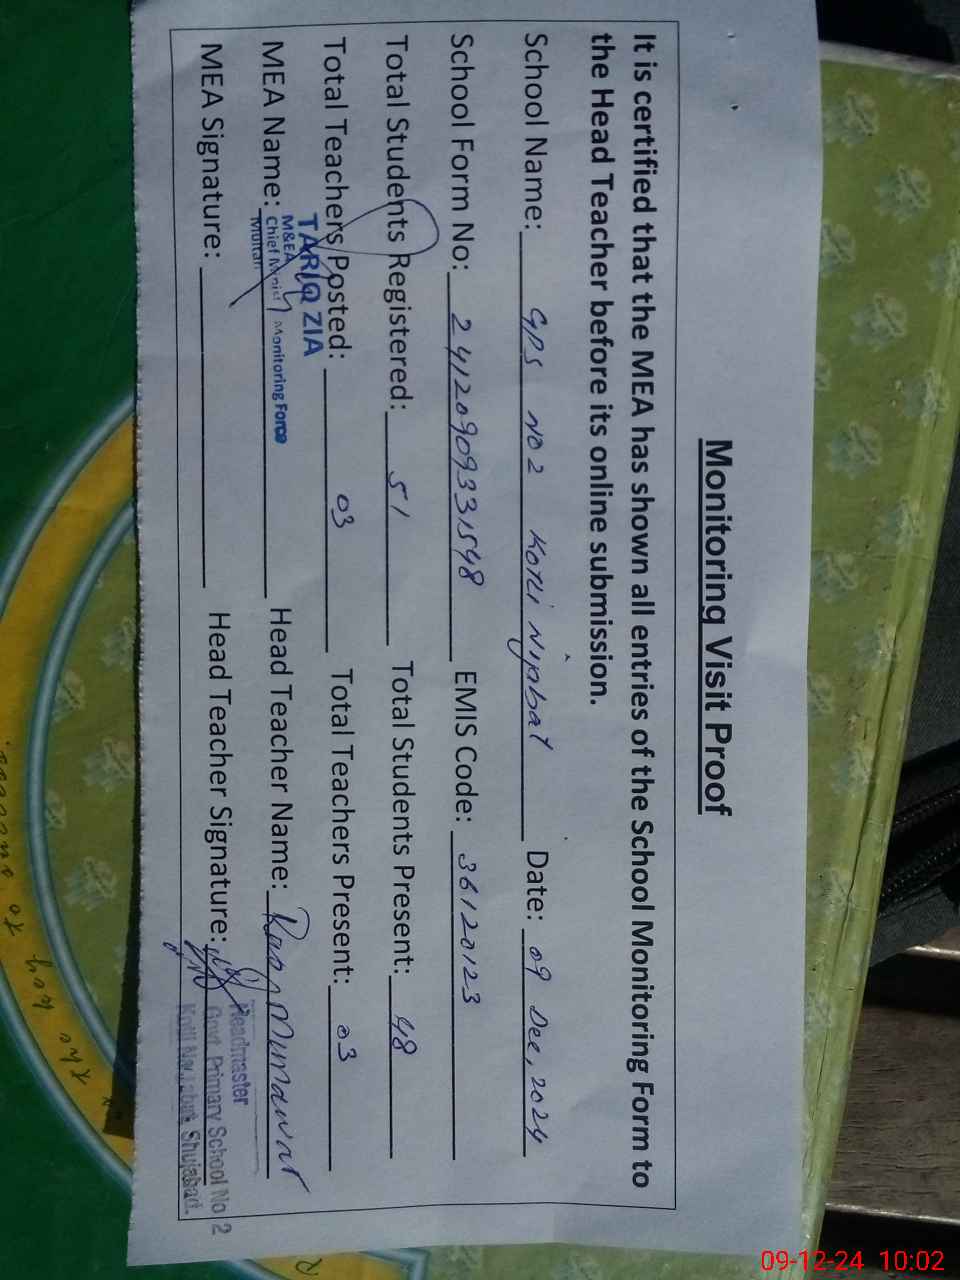 Monitoring Visit Proof
It is certified that the MEA has shown all entries of the School Monitoring Form to
the Head Teacher before its online submission.
School Name: GPS NO 2 Kotli Nijabat Date: 09 Dec, 2024
School Form No: 24120909331548 EMIS Code: 36120123
Total Students Registered: 51 Total Students Present: 48
Total Teachers Posted: 03 Total Teachers Present: 03
TARIQ ZIA
M&EA
Chief Minist Monitoring Force
Multan
MEA Name: Head Teacher Name:
MEA Signature: Head Teacher Signature:
Headmaster
Govt. Primary School No 2
Kotli Najabat Shujabad.
09-12-24 10:02